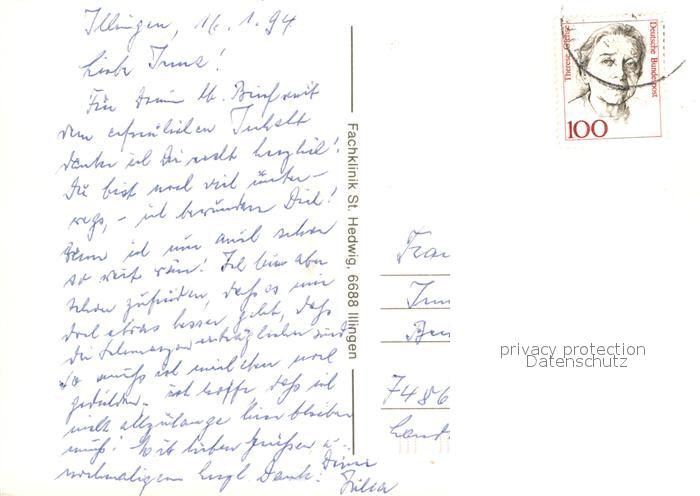 Illingen, 16.1.94
Liebe Irms!
Für Deinen lb. Brief mit
dem erfreulichen Inhalt
danke ich Dir recht herzlich!
Du bist noch viel unter-
wegs, - ich bewundere Dich!
Wenn ich nur auch schon
so weit wär! Ich bin aber
schon zufrieden, daß es mir
doch etwas besser geht, daß
die Schmerzen erträglicher sind.
So muß ich mich eben noch
gedulden. Ich hoffe, daß ich
nicht allzulange hier bleiben
muß! Mit lieben Grüßen u.
nochmaligem herzl. Dank!
Deine
Julia
Fachklinik St. Hedwig, 6688 Illingen
Deutsche Bundespost
Therese Giehse
100
Frau
7486
privacy protection
Datenschutz